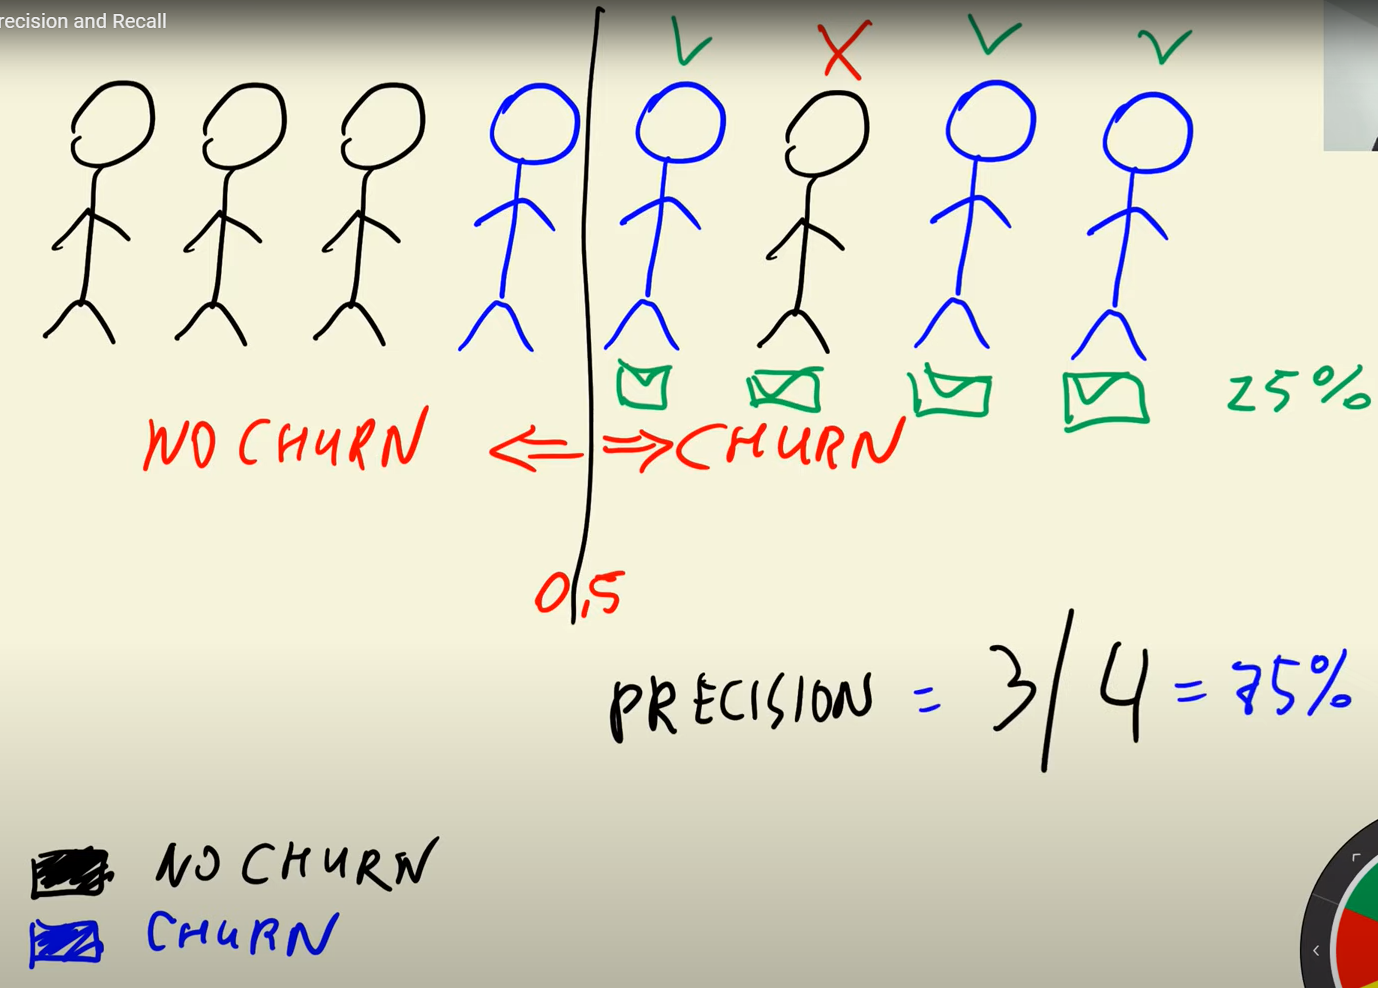 recision and Recall
25%
NO CHURN <= => CHURN
0,5
PRECISION = 3/4 = 75%
NO CHURN
CHURN